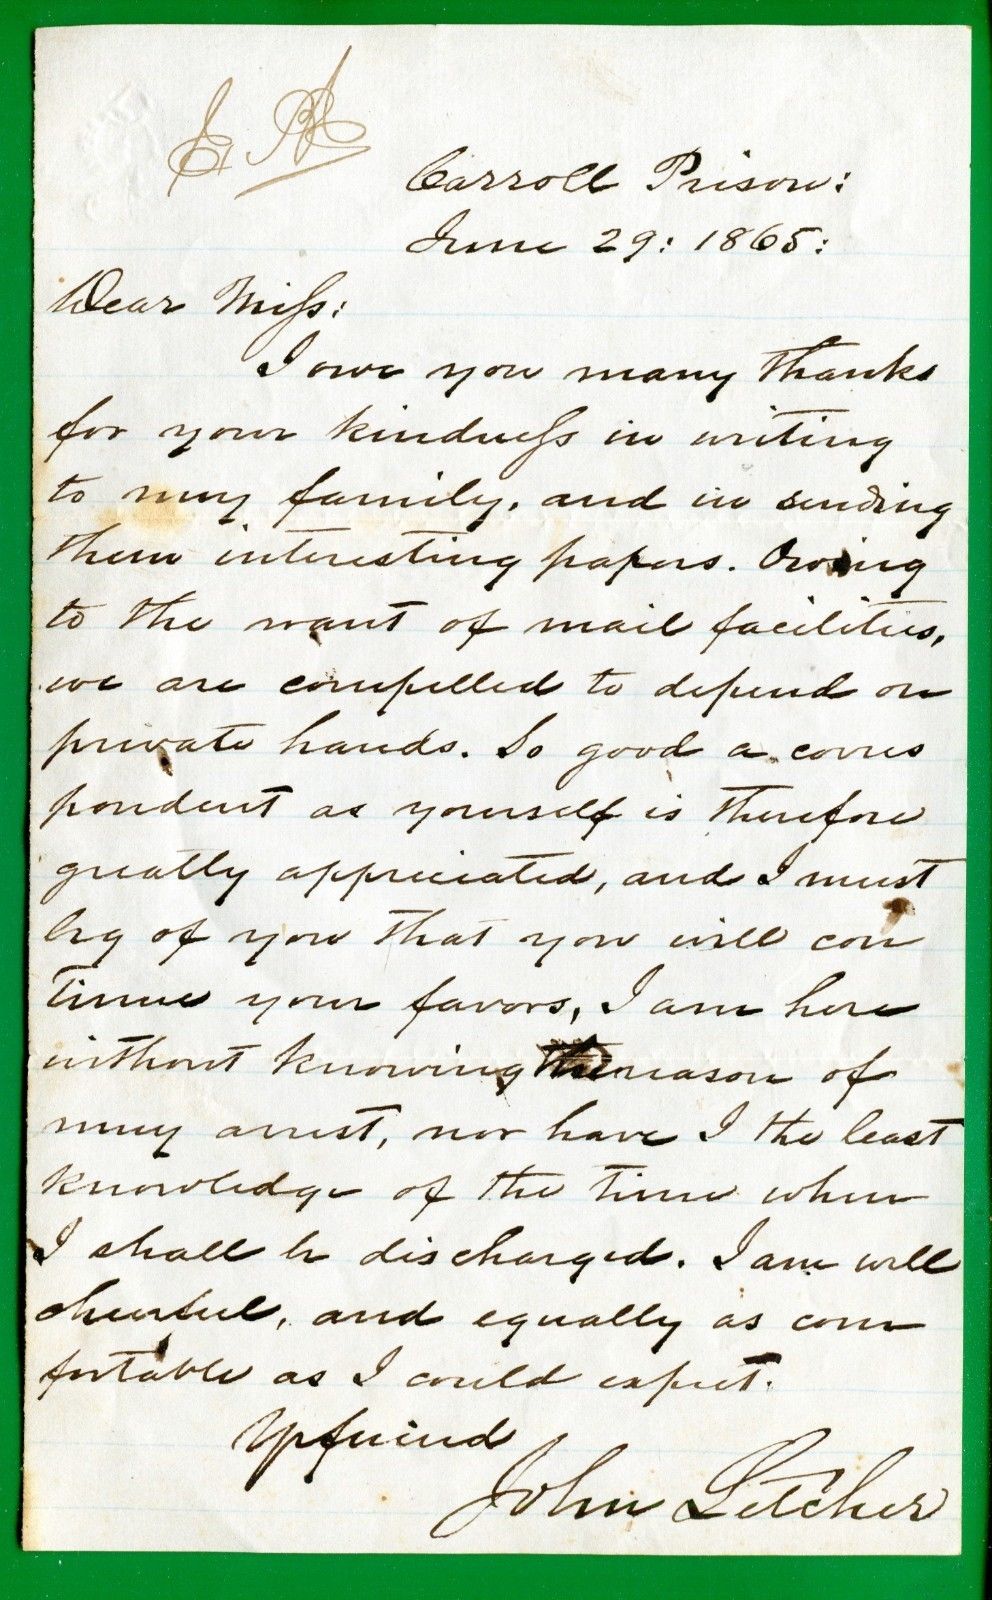 Carroll Prison:
June 29: 1865:
Dear Miss:
I owe you many thanks
for your kindness in writing
to my family, and in sending
them interesting papers. Owing
to the want of mail facilities,
we are compelled to depend on
private hands. So good a corres
pondent as yourself is therefore
greatly appreciated, and I must
beg of you that you will con
tinue your favors, I am here
without knowing the reason of
my arrest, nor have I the least
knowledge of the time when
I shall be discharged. I am well
cheerful, and equally as com
fortable as I could expect.
Yr friend
John Letcher